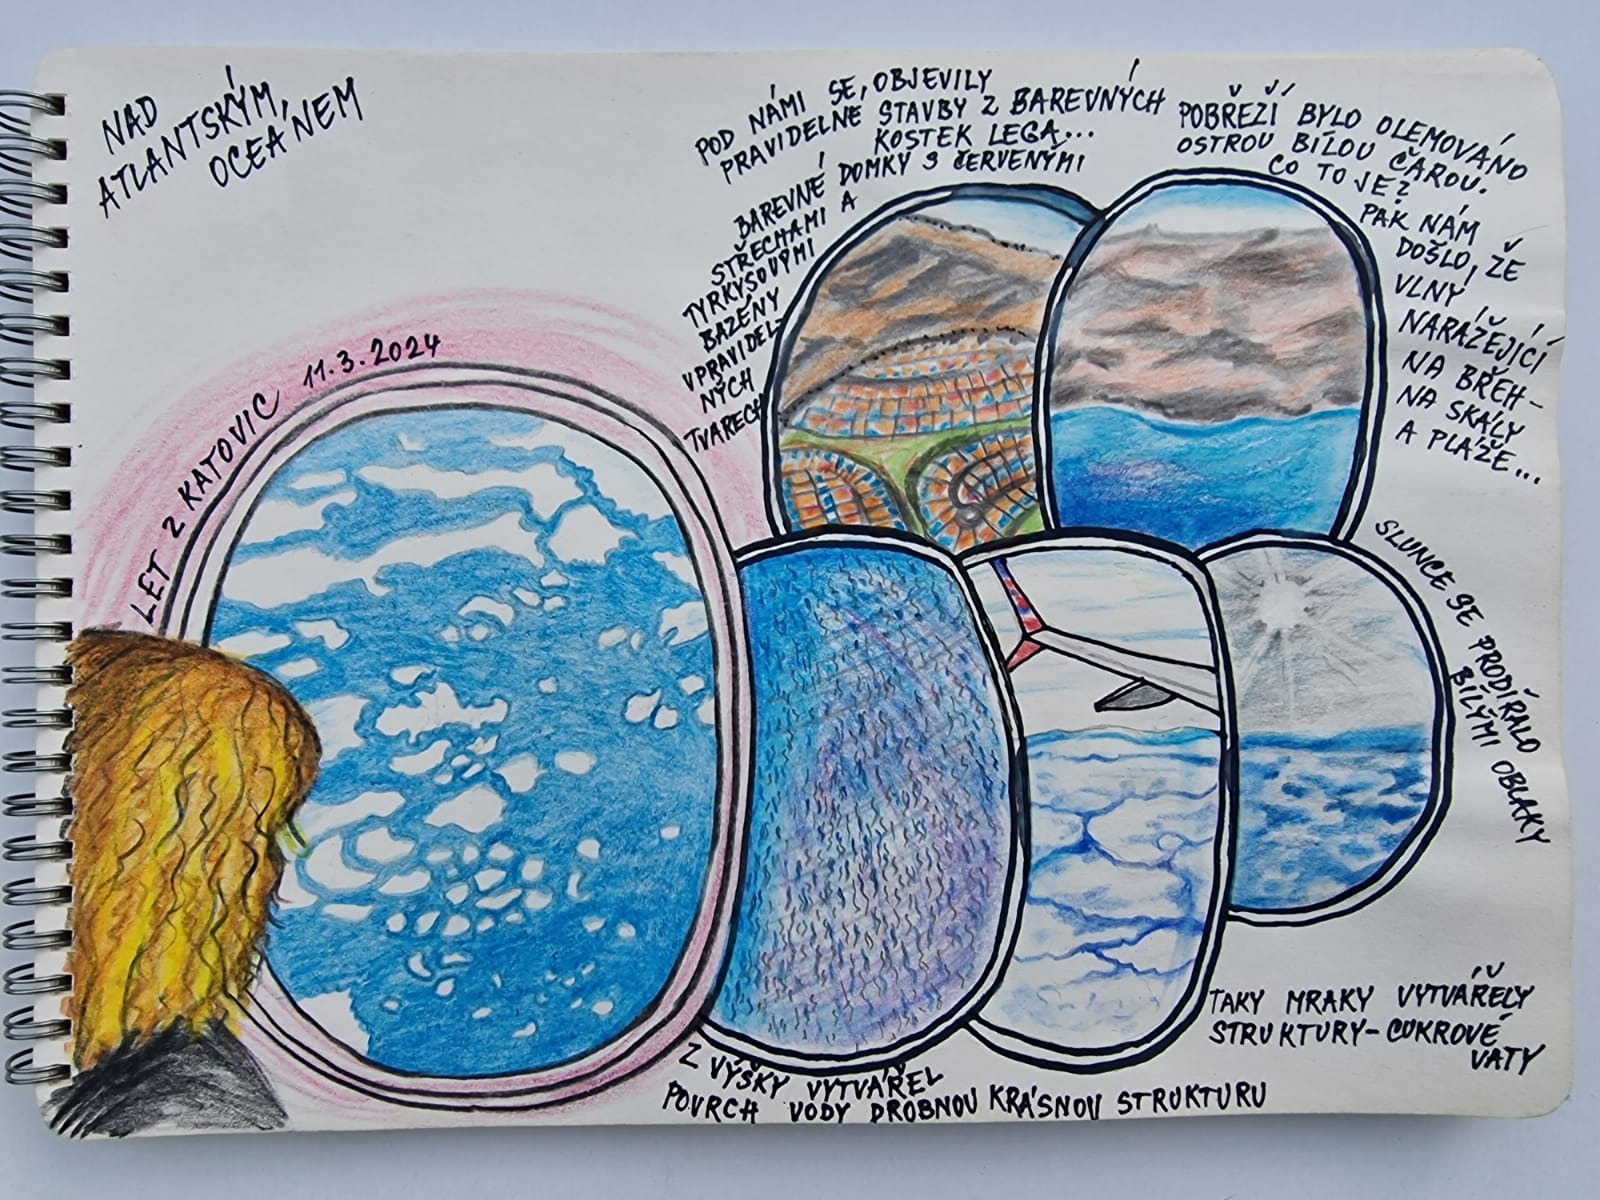 NAD
ATLANTSKÝM
OCEÁNEM
LET Z KATOVIC 11.3.2024
POD NÁMI SE OBJEVILY
PRAVIDELNÉ STAVBY Z BAREVNÝCH
KOSTEK LEGA...
BAREVNÉ DOMKY S ČERVENÝMI
STŘECHAMI A
TYRKYSOVÝMI
BAZÉNY
V PRAVIDEL-
NÝCH
TVARECH
POBŘEŽÍ BYLO OLEMOVÁNO
OSTROU BÍLOU ČAROU.
CO TO JE?
PAK NÁM
DOŠLO, ŽE
VLNY
NARÁŽEJÍCÍ
NA BŘEH -
NA SKÁLY
A PLÁŽE...
SLUNCE SE PRODÍRALO
BÍLÝMI OBLAKY
TAKY MRAKY VYTVÁŘELY
STRUKTURY - CUKROVÉ
VATY
Z VÝŠKY VYTVÁŘEL
POVRCH VODY DROBNOU KRÁSNOU STRUKTURU